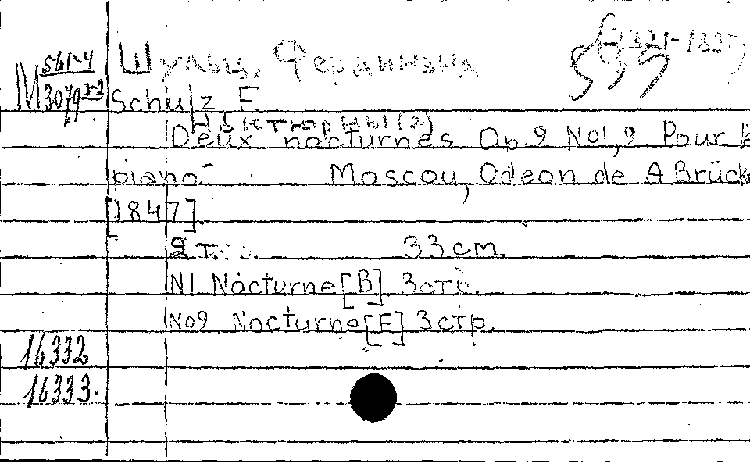 М 561-4 Шульц, Фердинанд
3079 Schulz F.
Ноктюрны (2)
Deux nocturnes Op.2 No1,2 Pour le
piano. Moscou, Odeon de A Brück
[1847]
2 т. 33 cm.
N1 Nocturne [B] 3 стр.
No2 Nocturne [E] 3 стр.
16332
16333.